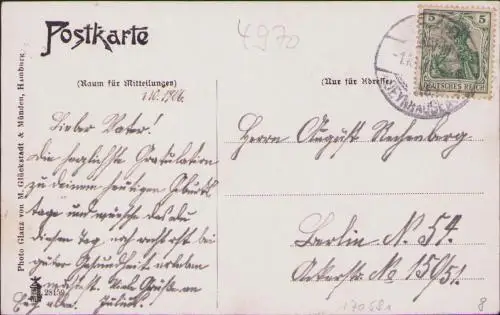 Postkarte
4970
(Raum für Mitteilungen)
1.10.1906.
(Nur für Adresse)
5 5
DEUTSCHES REICH
OEYNHAUSEN
Lieber Vater!
Die herzlichste Gratulation
zu deinem heutigen Geburts
tage und wünsche das du
diesen Tag, noch recht oft bei
guter Gesundheit erleben
Viele Grüße an
Herrn August Rechenberg
Berlin N. 54.
Ackerstr. No 150/51.
Photo Glanz von M. Glückstadt & Münden, Hamburg.
28159
170681
8